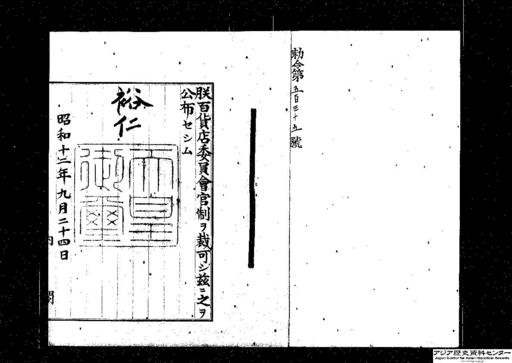 勅令第五百三十五號
朕百貨店委員會官制ヲ裁可シ茲ニ之ヲ
公布セシム
裕仁
天皇
御璽
昭和十二年九月二十四日
内閣
アジア歴史資料センター
Japan Center for Asian Historical Records